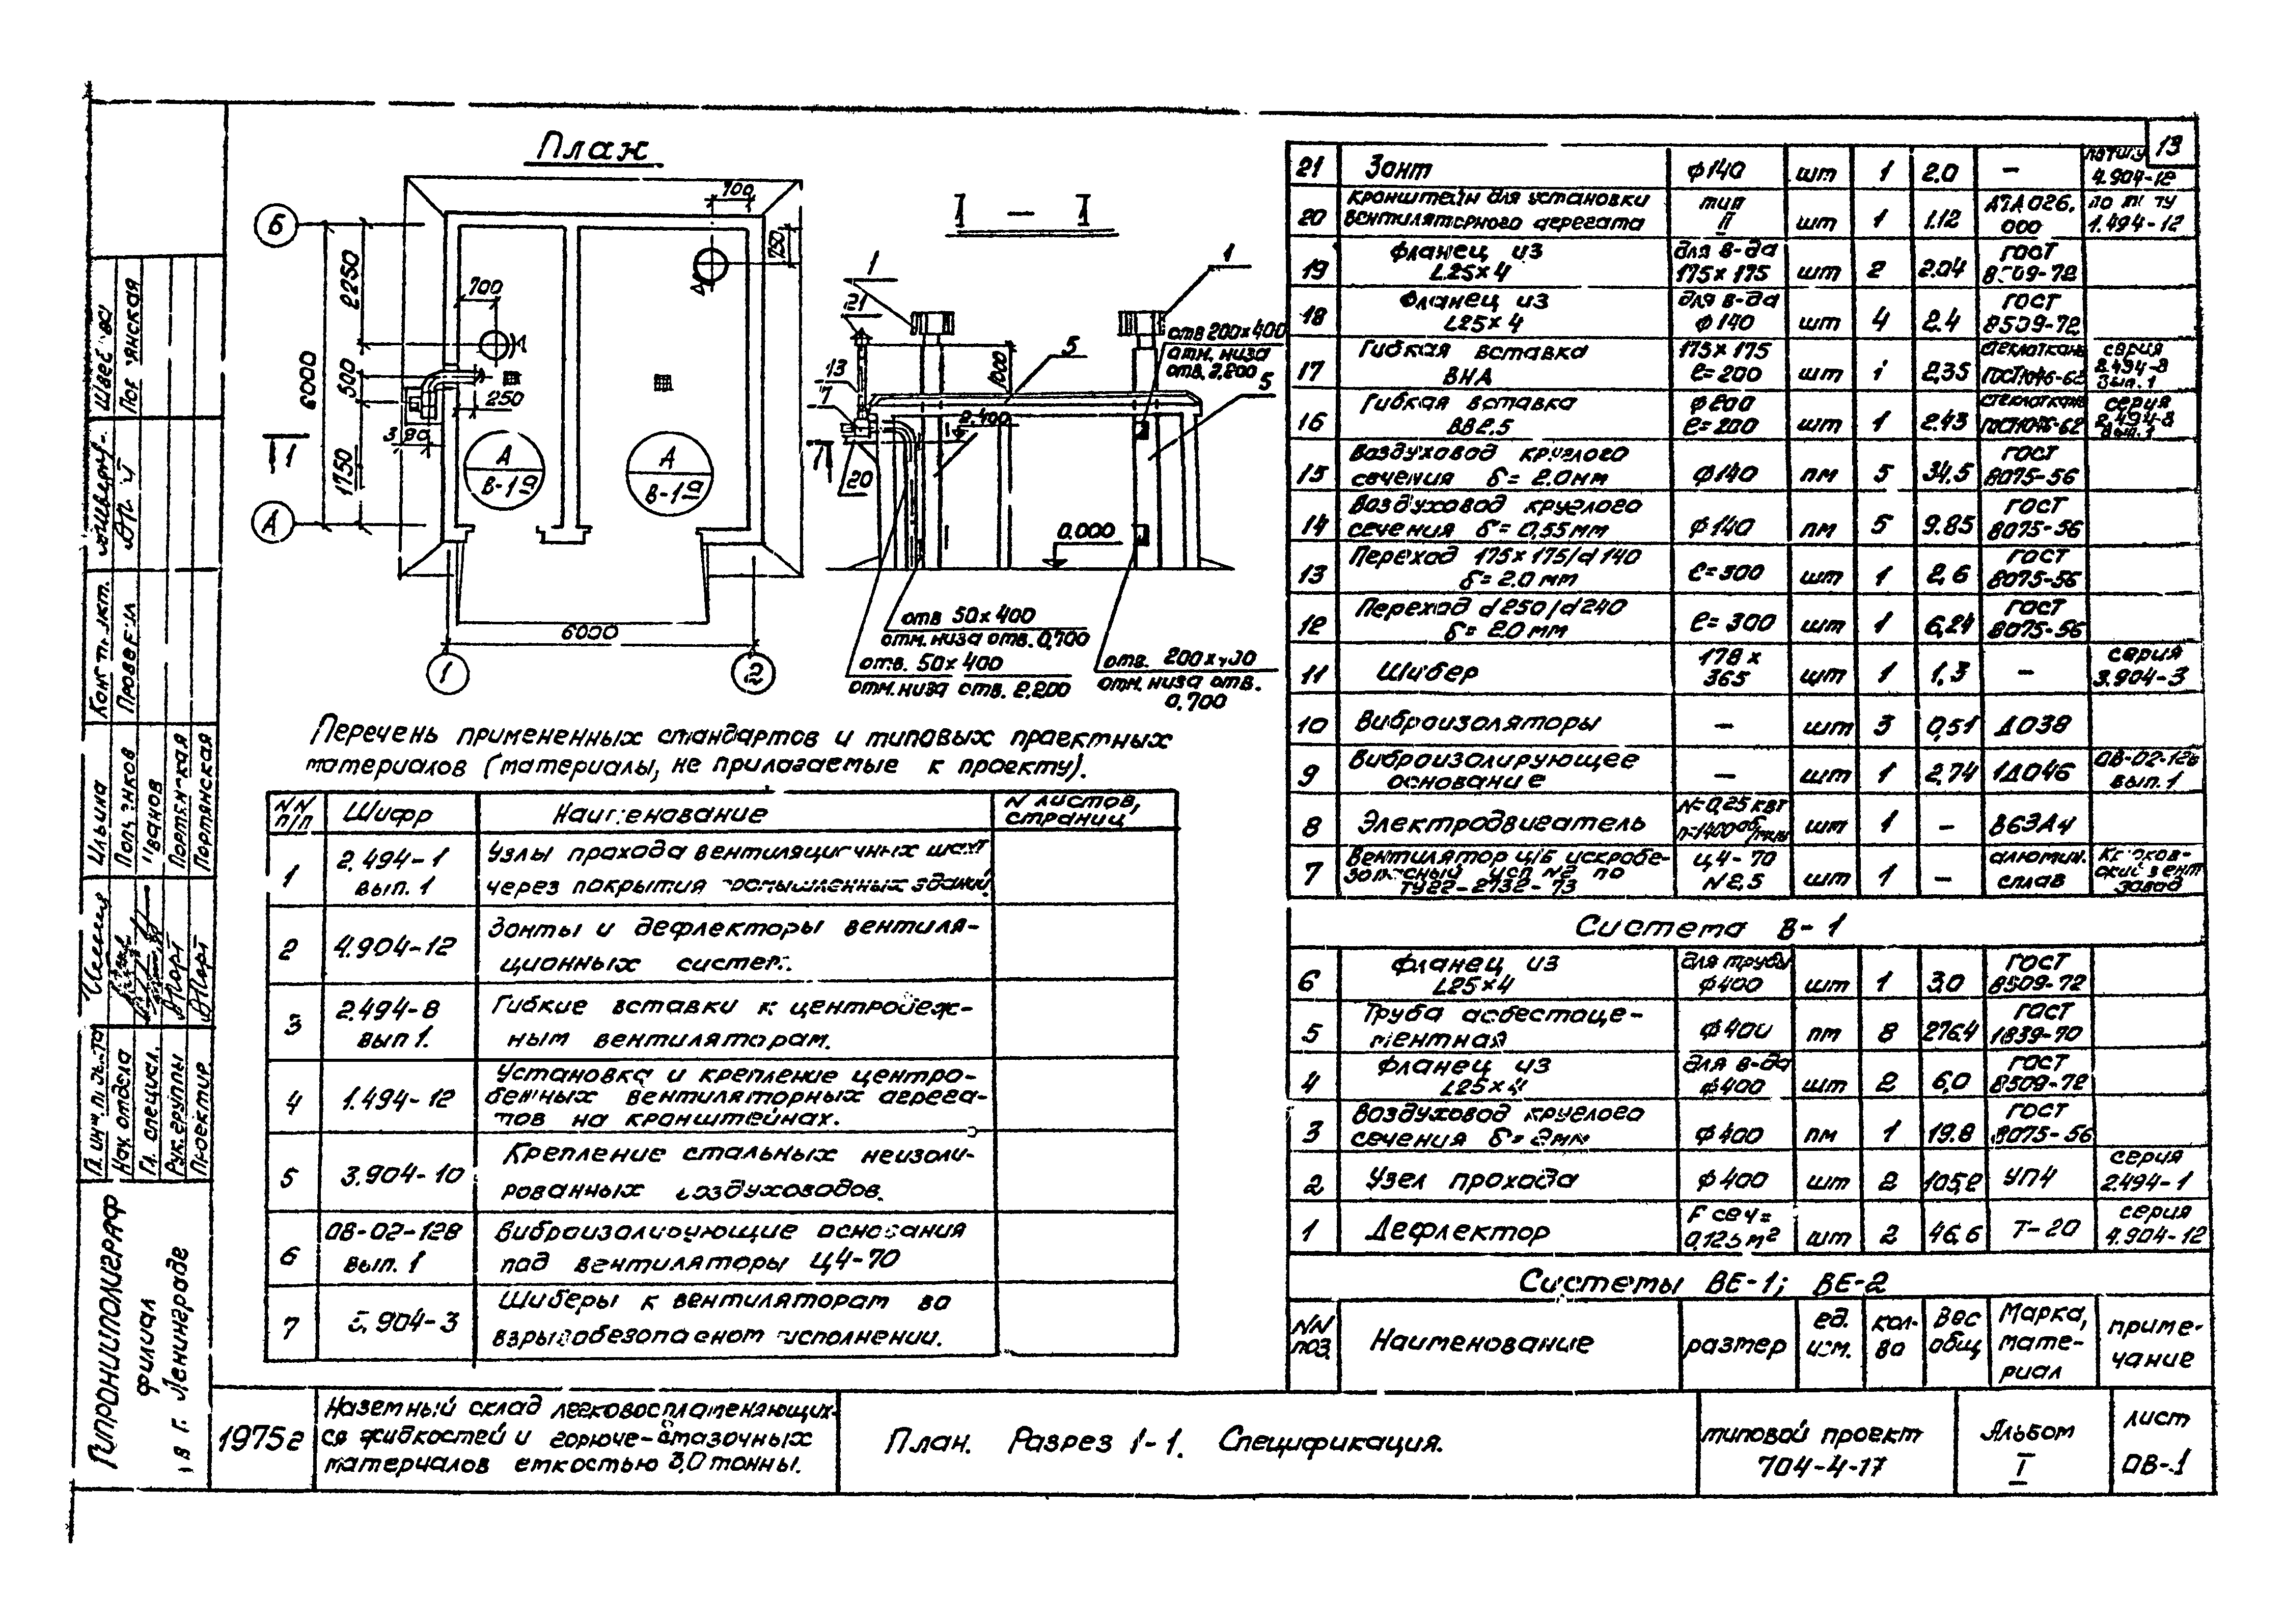 13
План
Б
А
1
2
700
750
700
2250
500
6000
1750
250
6000
А
В-1а
А
В-1а
I
I - I
1
1
21
13
7
20
5
5
1000
2.400
0.000
отв 200х400
отм. низа
отв. 2.200
отв 50х400
отм. низа отв. 0,700
отв. 50х400
отм. низа отв. 2,200
отв.
отм. низа отв.
0.700
Перечень примененных стандартов и типовых проектных
материалов (материалы, не прилагаемые к проекту).
NN п/п
Шифр
Наименование
N листов, страниц
1
2.494-1 вып. 1
Узлы прохода вентиляционных шахт
через покрытия промышленных зданий
2
4.904-12
Зонты и дефлекторы вентиля-
ционных систем.
3
2.494-8 вып 1.
Гибкие вставки к центробеж-
ным вентиляторам.
4
1.494-12
Установка и крепление центро-
бежных вентиляторных агрега-
тов на кронштейнах.
5
3.904-10
Крепление стальных неизоли-
рованных воздуховодов.
6
ОВ-02-128 вып. 1
Виброизолирующие основания
под вентиляторы Ц4-70
7
904-3
Шиберы к вентиляторам во
взрывобезопасном исполнении.
21 Зонт ф140 шт 1 2.0 - 4.904-12
20 Кронштейн для установки вентиляторного агрегата тип II шт 1 1.12 000 1.494-12
19 Фланец из L25х4 для в-да 175х175 шт 2 2.04 ГОСТ 8509-72
18 Фланец из L25х4 для в-да ф140 шт 4 2.4 ГОСТ 8509-72
17 Гибкая вставка ВНА 175х175 ℓ=200 шт 1 2,35 стеклоткань серия 2.494-8 вып. 1
16 Гибкая вставка ВВ2.5 ф200 ℓ=200 шт 1 2.43 стеклоткань серия 2.494-8 вып. 1
15 Воздуховод круглого сечения δ=2.0мм ф140 пм 5 34.5 ГОСТ 8075-56
14 Воздуховод круглого сечения δ=0,55мм ф140 пм 5 9.85 ГОСТ 8075-56
13 Переход 175х175/d140 δ=2.0мм ℓ=300 шт 1 2,6 ГОСТ 8075-56
12 Переход d250/d240 δ=2.0мм ℓ=300 шт 1 6,24 ГОСТ 8075-56
11 Шибер 178х365 шт 1 1.3 - серия 3.904-3
10 Виброизоляторы - шт 3 0,51 ДО38
9 Виброизолирующее основание - шт 1 2,74 1ДО46 ОВ-02-128 вып. 1
8 Электродвигатель N=0,25 квт n=1400 об/мин шт 1 - В63А4
7 Вентилятор ц/б искробе- зопасный исп №2 по ТУ22-2732-73 Ц4-70 N2,5 шт 1 - алюмин. сплав завод
Система В-1
6 Фланец из L25х4 для трубы ф400 шт 1 3.0 ГОСТ 8509-72
5 Труба асбестоце- ментная ф400 пм 8 276.4 ГОСТ 1839-70
4 Фланец из L25х4 для в-да ф400 шт 2 6,0 ГОСТ 8509-72
3 Воздуховод круглого сечения δ=2мм ф400 пм 1 19.8 ГОСТ 8075-56
2 Узел прохода ф400 шт 2 105,2 УП4 серия 2.494-1
1 Дефлектор F сеч= 0,125м² шт 2 46.6 Т-20 серия 4.904-12
Системы ВЕ-1; ВЕ-2
NN поз. Наименование размер ед. изм. кол-во Вес общ Марка, мате-риал приме-чание
Гипрониполиграф
филиал
в г. Ленинграде
Нач. отдела
Гл. специал.
Рук. группы
Проектир.
Ильина
Иванов
Портянская
Портянская
Проверил
1975г
Наземный склад легковоспламеняющих-
ся жидкостей и горюче-смазочных
материалов емкостью 3,0 тонны.
План. Разрез 1-1. Спецификация.
типовой проект
704-4-17
Альбом
I
лист
ОВ-1